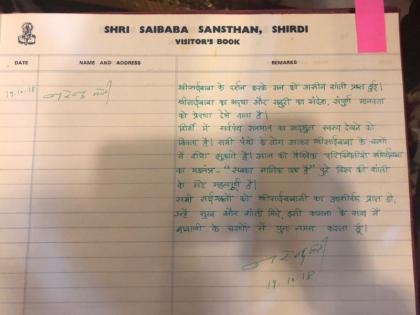 SHRI SAIBABA SANSTHAN, SHIRDI
VISITOR'S BOOK
DATE NAME AND ADDRESS REMARKS
19.10.18 नरेन्द्र मोदी
श्री साईंबाबा के दर्शन करके मन को असीम शांति प्राप्त हुई।
श्री साईंबाबा का श्रद्धा और सबुरी का संदेश, संपूर्ण मानवता
को प्रेरणा देने वाला है।
शिर्डी में सर्वपंथ समभाव का अद्भुत स्वरूप देखने को
मिलता है। सभी पंथों के लोग आकर श्री साईंबाबा के चरणों
में शीश झुकाते हैं। आज की वैश्विक परिस्थितियों में साईंबाबा
का महामंत्र - "सबका मालिक एक है" पूरे विश्व की शांति
के लिए महत्वपूर्ण है।
सभी साईंभक्तों को श्री साईंबाबाजी का आशीर्वाद प्राप्त हो,
उन्हें सुख और शांति मिले, इसी कामना के साथ मैं
बाबाजी के चरणों में पुनः नमन करता हूँ।
नरेन्द्र मोदी
19.10.18